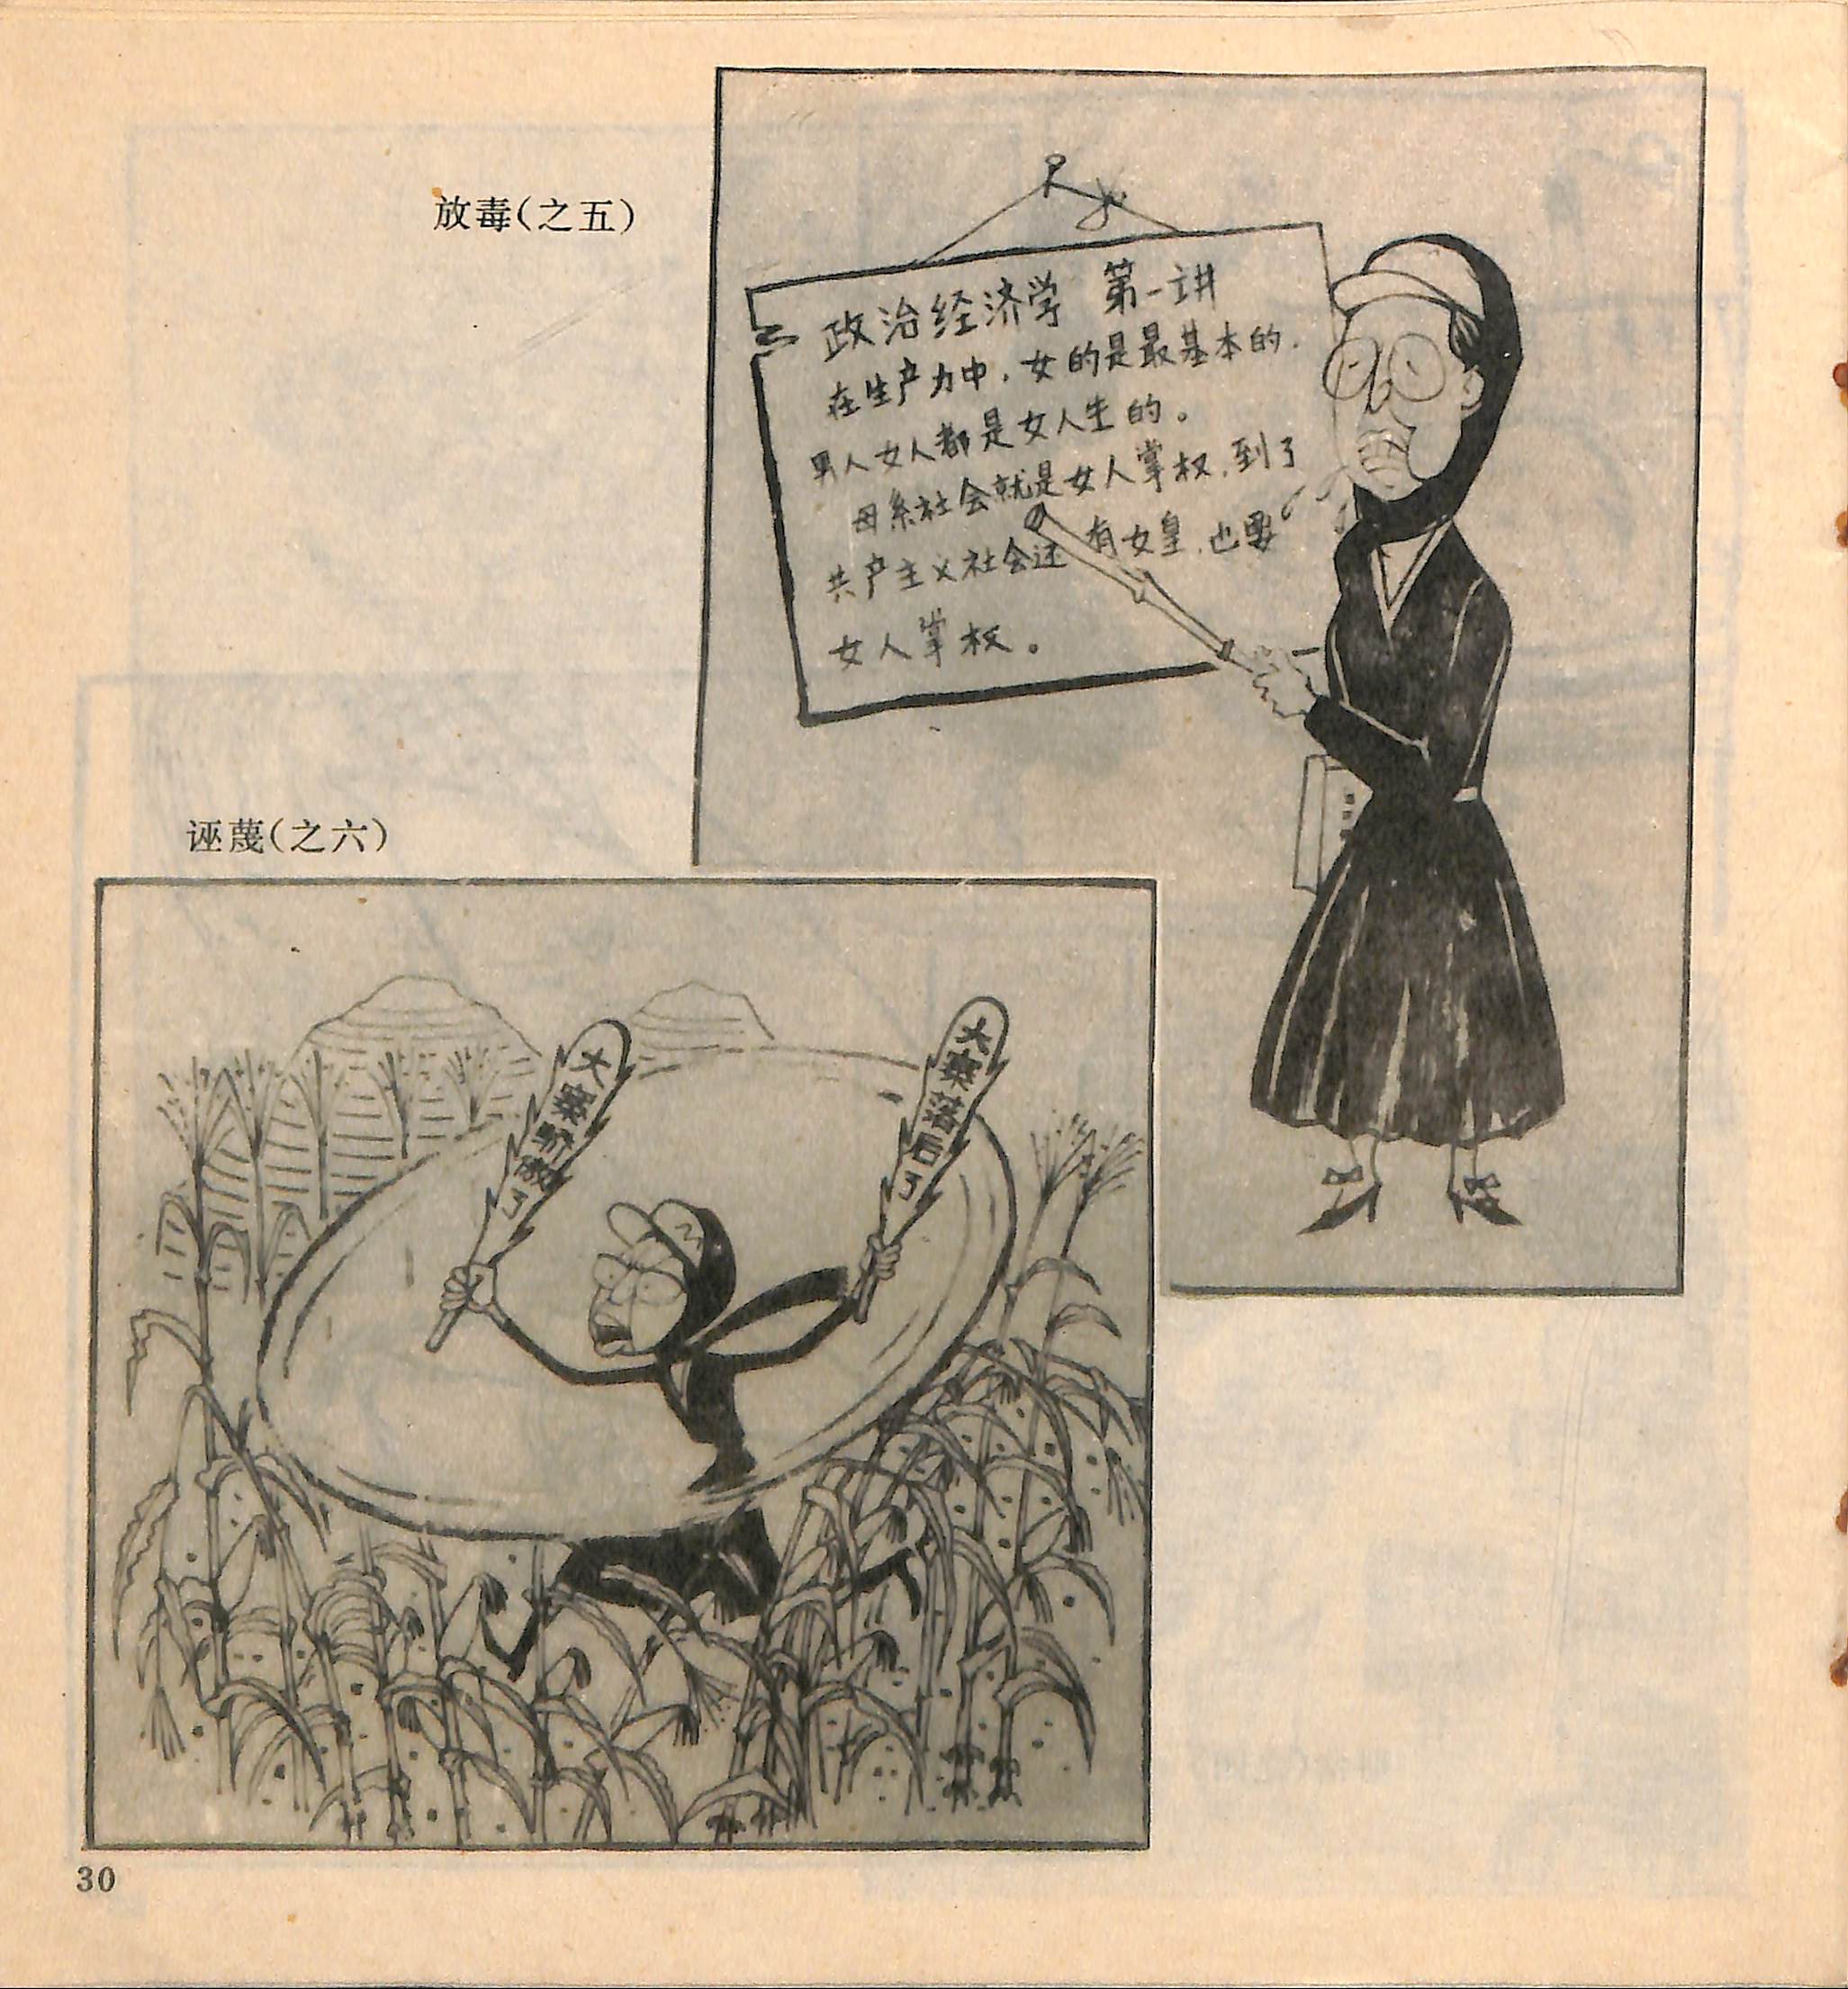 放毒(之五)
政治经济学 第一讲
在生产力中，女的是最基本的．
男人女人都是女人生的。
母系社会就是女人掌权，到了
共产主义社会还有女皇，也要
女人掌权。
诬蔑(之六)
大寨骄傲了
大寨落后了
30